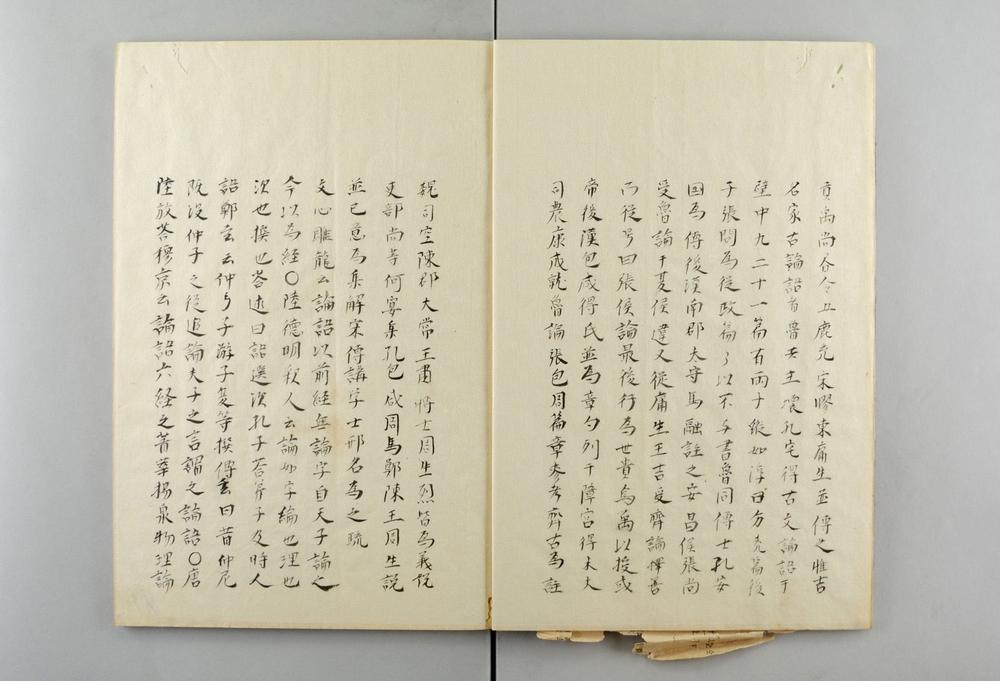 貢禹尚各令五鹿充宋膠東庸生並傳之惟吉
名家古論語者魯共王壞孔宅得古文論語于
壁中九二十一篇有兩子張如淳曰分堯篇後
子張問為從政篇了以不与書魯同傳士孔安
国為傳後漢南郡太守馬融註之安昌侯張尚
受魯論于夏侯違又從庸生王吉受齊論擇善
而從号曰張侯論最後行為世貴焉禹以授成
帝後漢包咸得氏並為章句列于障宮得末大
司農康成就魯論張包周篇章參考齊古為註
魏司空陳郡大常王肅博士周生烈皆為義悦
吏部尚寺何宴集孔包咸周馬鄭陳王周生説
並已意為集解宋傳講学士邢名為之疏
文心雕龍云論語以前経無論字自天子論之
今以為経〇陸德明秋人云論如字綸也理也
次也撰也荅述曰語選次孔子荅弟子及時人
語鄭玄云仲弓子游子夏等撰傳玄曰昔仲尼
既没仲子之従追論夫子之言謂之論語〇唐
陸放荅穆京云論語六経之菁華揚泉物理論